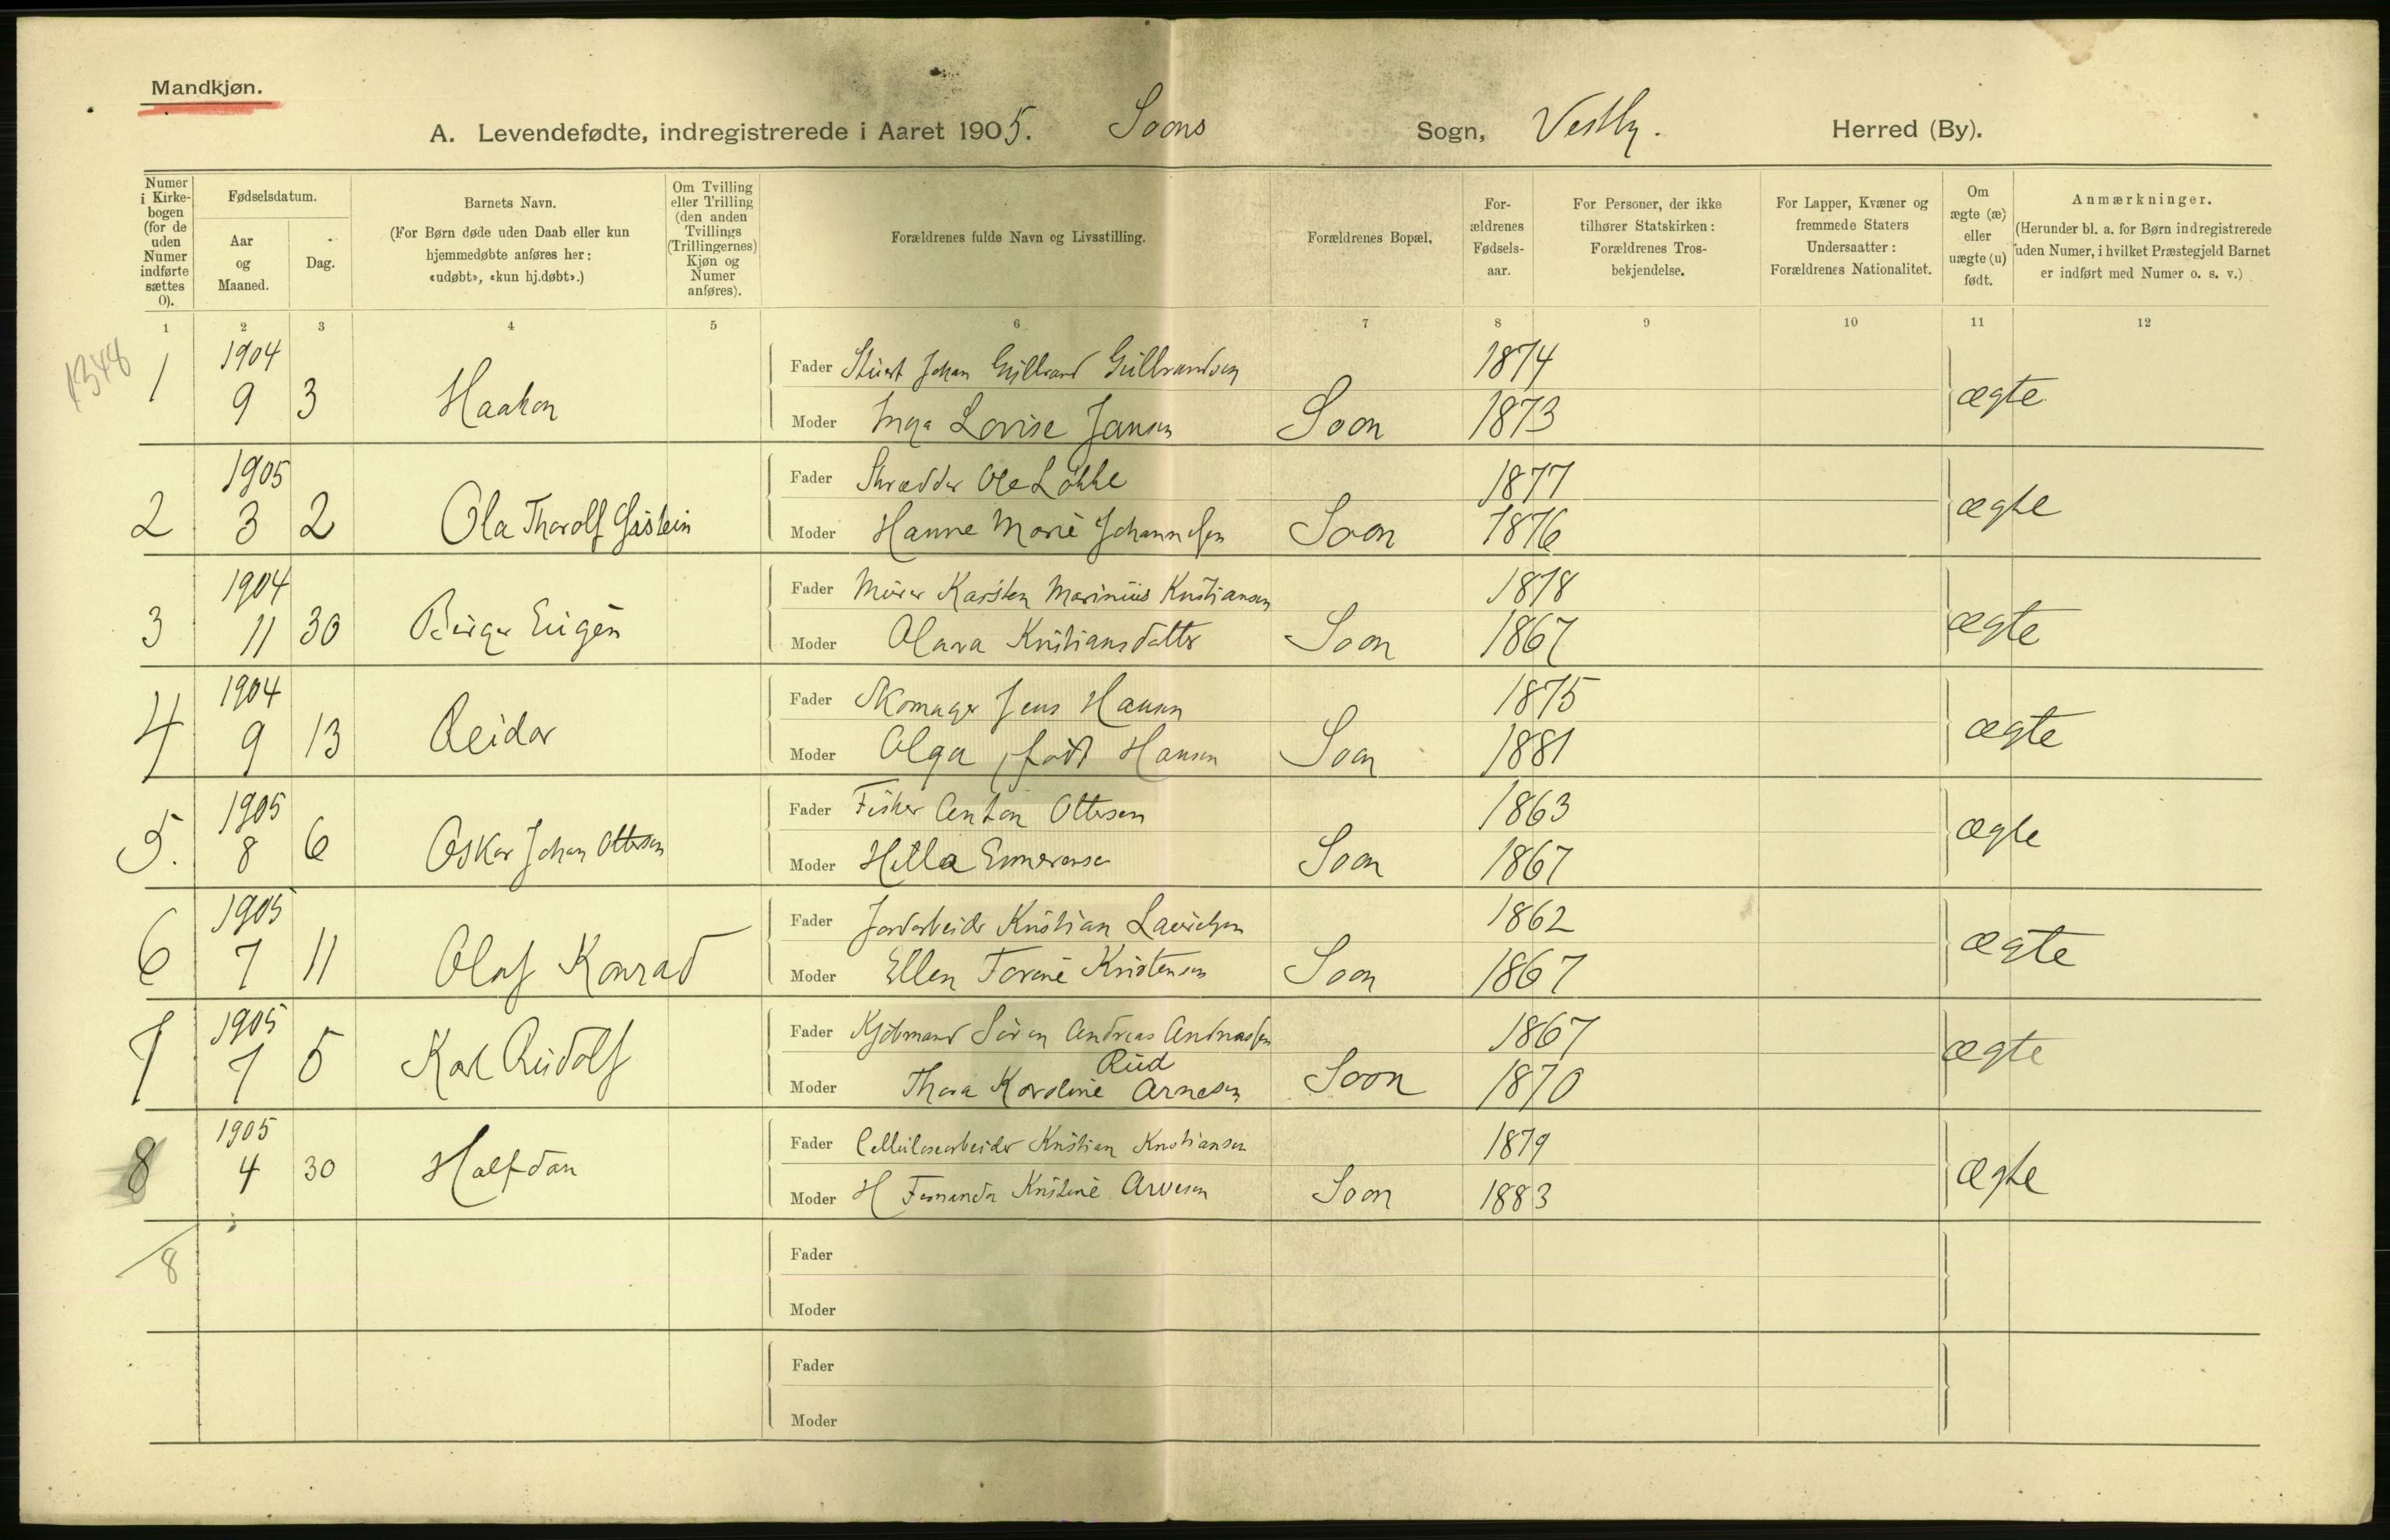 Mandkjøn.
A. Levendefødte, indregistrerede i Aaret 1905. Soons Sogn, Vestby. Herred (By).
Numer i Kirkebogen (for de uden Numer indførte sættes 0).
Fødselsdatum.
Aar og Maaned.
Dag.
Barnets Navn.
(For Børn døde uden Daab eller kun hjemmedøbte anføres her: «udøbt», «kun hj.døbt».)
Om Tvilling eller Trilling (den anden Tvillings (Trillingernes) Kjøn og Numer anføres).
Forældrenes fulde Navn og Livsstilling.
Forældrenes Bopæl.
Forældrenes Fødselsaar.
For Personer, der ikke tilhører Statskirken: Forældrenes Trosbekjendelse.
For Lapper, Kvæner og fremmede Staters Undersaatter: Forældrenes Nationalitet.
Om ægte (æ) eller uægte (u) født.
Anmærkninger.
(Herunder bl. a. for Børn indregistrerede uden Numer, i hvilket Præstegjeld Barnet er indført med Numer o. s. v.)
1 2 3 4 5 6 7 8 9 10 11 12
1348
1904 Fader Johan Gulbrand Gulbrandsen 1874
1 9 3 Haakon Moder Inga Lovise Jansen Soon 1873 ægte
1905 Fader Skrædder Ole Løkke 1877
2 3 2 Ola Tharolf Moder Hanne Marie Johannesen Soon 1876 ægte
1904 Fader Murer Karsten Marinius Kristiansen 1878
3 11 30 Birger Eugen Moder Olava Kristiansdatter Soon 1867 ægte
1904 Fader Skomager Jens Hansen 1875
4 9 13 Reidar Moder Olga født Hansen Soon 1881 ægte
1905 Fader Fisker Anton Ottersen 1863
5. 8 6 Oskar Johan Ottersen Moder Soon 1867 ægte
1905 Fader Jordarbeider Kristian Lauritsen 1862
6 7 11 Olaf Konrad Moder Ellen Torine Kristensen Soon 1867 ægte
1905 Fader Kjøbmand Søren Andreas Andreassen 1867
Rud
7 7 5 Karl Rudolf Moder Thora Karoline Arnesen Soon 1870 ægte
1905 Fader Cellulosearbeider Kristian Kristiansen 1879
8 4 30 Halfdan Moder H Fernanda Kristine Arvesen Soon 1883 ægte
8
Fader
Moder
Fader
Moder